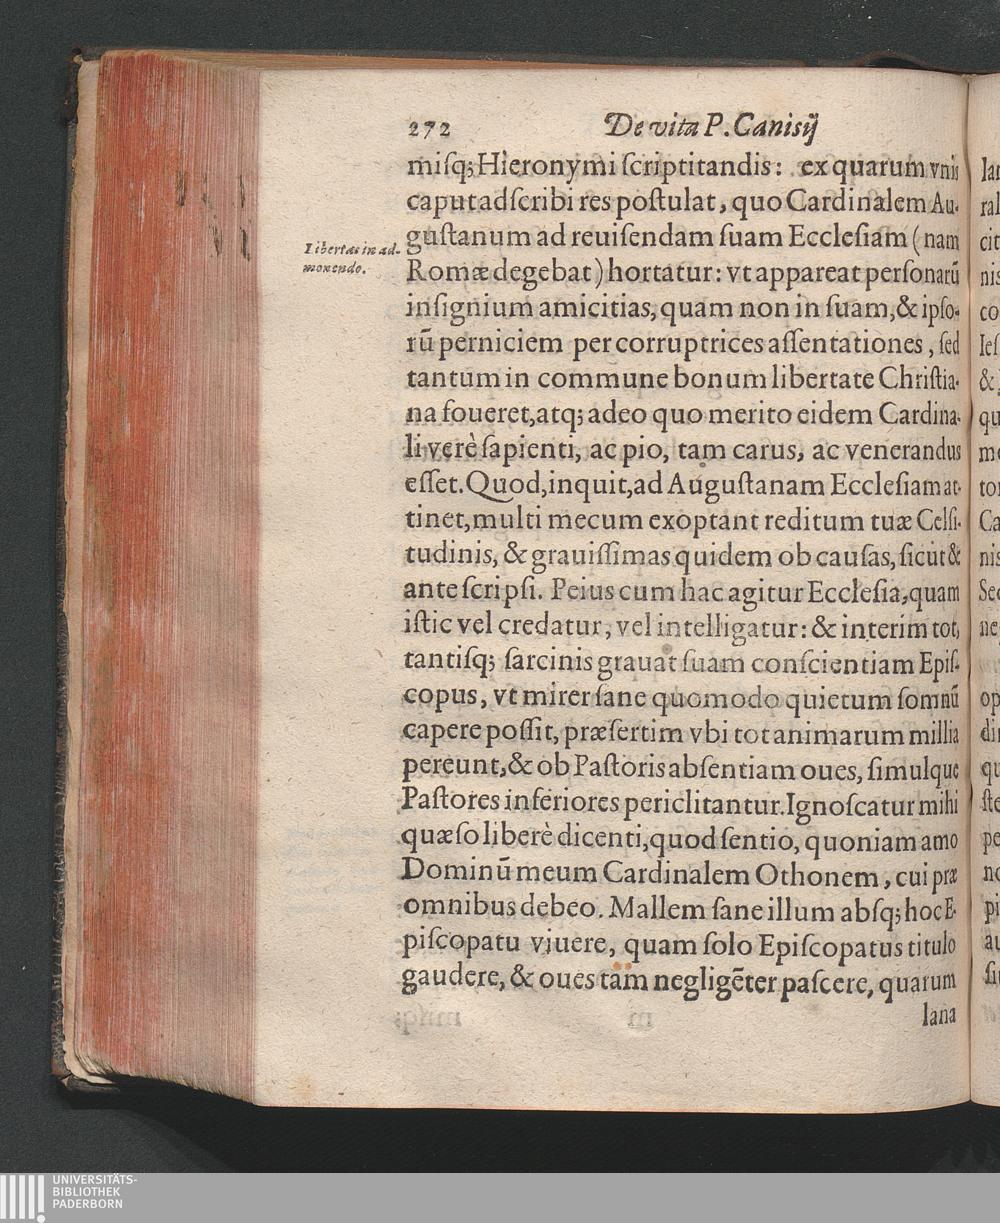 272 De vita P. Canisij
miſq; Hieronymi ſcriptitandis: ex quarum vnis
caput adſcribi res poſtulat, quo Cardinalem Au-
guſtanum ad reuiſendam ſuam Eccleſiam (nam
Libertas in ad-
monendo.
Romæ degebat) hortatur: vt appareat perſonarū
inſignium amicitias, quam non in ſuam, & ipſo-
rū perniciem per corruptrices aſſentationes, ſed
tantum in commune bonum libertate Chriſtia-
na foueret, atq; adeo quo merito eidem Cardina-
li verè ſapienti, ac pio, tam carus, ac venerandus
eſſet. Quod, inquit, ad Auguſtanam Eccleſiam at-
tinet, multi mecum exoptant reditum tuæ Celſi-
tudinis, & grauiſſimas quidem ob cauſas, ſicut &
ante ſcripſi. Peius cum hac agitur Eccleſia, quam
iſtic vel credatur, vel intelligatur: & interim tot,
tantiſq; ſarcinis grauat ſuam conſcientiam Epiſ-
copus, vt mirer ſane quomodo quietum ſomnū
capere poſſit, præſertim vbi tot animarum millia
pereunt, & ob Paſtoris abſentiam oues, ſimulque
Paſtores inferiores periclitantur. Ignoſcatur mihi
quæſo liberè dicenti, quod ſentio, quoniam amo
Dominū meum Cardinalem Othonem, cui præ
omnibus debeo. Mallem ſane illum abſq; hoc E-
piſcopatu viuere, quam ſolo Epiſcopatus titulo
gaudere, & oues tam negligēter paſcere, quarum
lana
UNIVERSITÄTS-
BIBLIOTHEK
PADERBORN